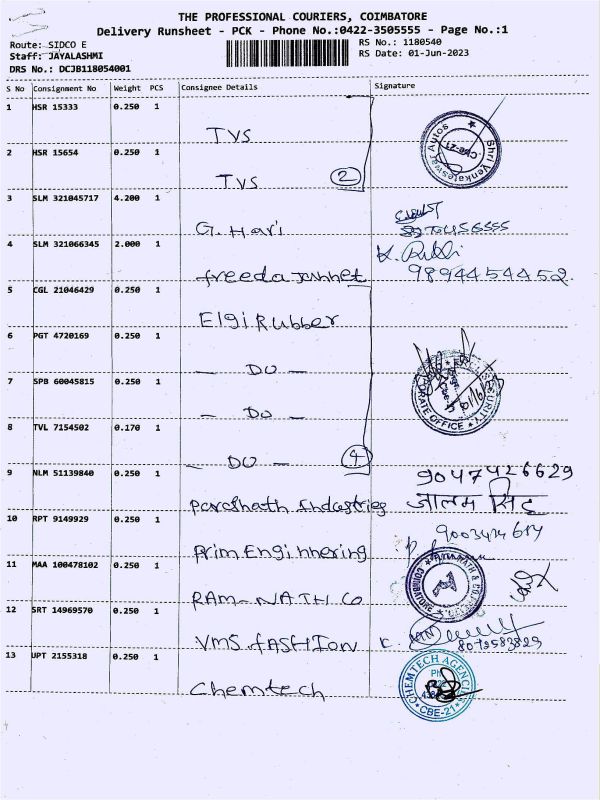 THE PROFESSIONAL COURIERS, COIMBATORE
Delivery Runsheet - PCK - Phone No.:0422-3505555 - Page No.:1
Route: SIDCO E
Staff: JAYALASHMI
DRS No.: DCJB118054001
RS No.: 1180540
RS Date: 01-Jun-2023
S No Consignment No Weight PCS Consignee Details Signature
1 HSR 15333 0.250 1
TVS
2 HSR 15654 0.250 1
TVS 2
3 SLM 321045717 4.200 1
G. Hari
4 SLM 321066345 2.000 1
freeda Jannet 9894454452
5 CGL 21046429 0.250 1
Elgi Rubber
6 PGT 4720169 0.250 1
- DO -
7 SPB 60045815 0.250 1
- DO -
8 TVL 7154502 0.170 1
- DO - 4
9 NLM 51139840 0.250 1 9047426629
Parshath Industries जालम सिंह
10 RPT 9149929 0.250 1
Prim Enginnering
11 MAA 100478102 0.250 1
RAM-NATH CO
12 SRT 14969570 0.250 1
VMS. FASHION
13 UPT 2155318 0.250 1
Chemtech
Shri Venkateswar Autos
CBE-21
CORPORATE OFFICE
COIMBATORE
CHEMTECH AGENCIES
CBE-21